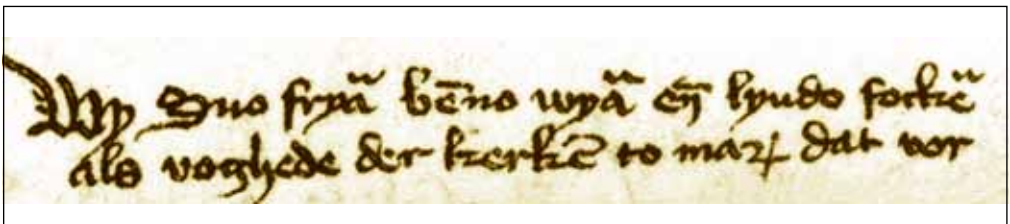 Wy Eno fryā bēno wyā eñ lyudo fockē
als voghede der kerkē to mar, dat vor